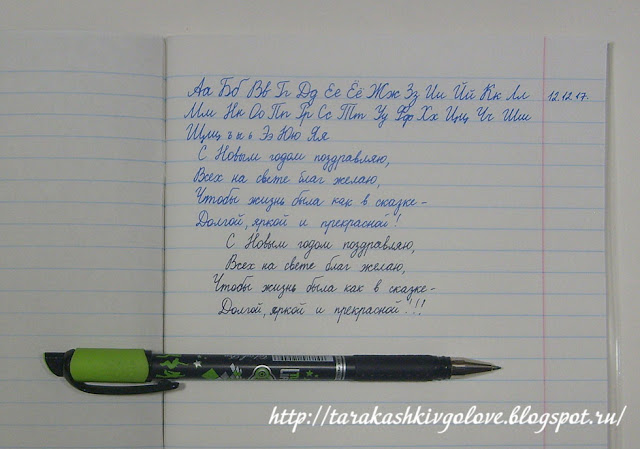 Аа Бб Вв Гг Дд Ее Ёё Жж Зз Ии Йй Кк Лл
12.12.17.
Мм Нн Оо Пп Рр Сс Тт Уу Фф Хх Цц Чч Шш
Щщ ъ ы ь Ээ Юю Яя
С Новым годом поздравляю,
Всех на свете благ желаю,
Чтобы жизнь была как в сказке -
Долгой, яркой и прекрасной!
С Новым годом поздравляю,
Всех на свете благ желаю,
Чтобы жизнь была как в сказке -
Долгой, яркой и прекрасной!!!
http://tarakashkivgolove.blogspot.ru/